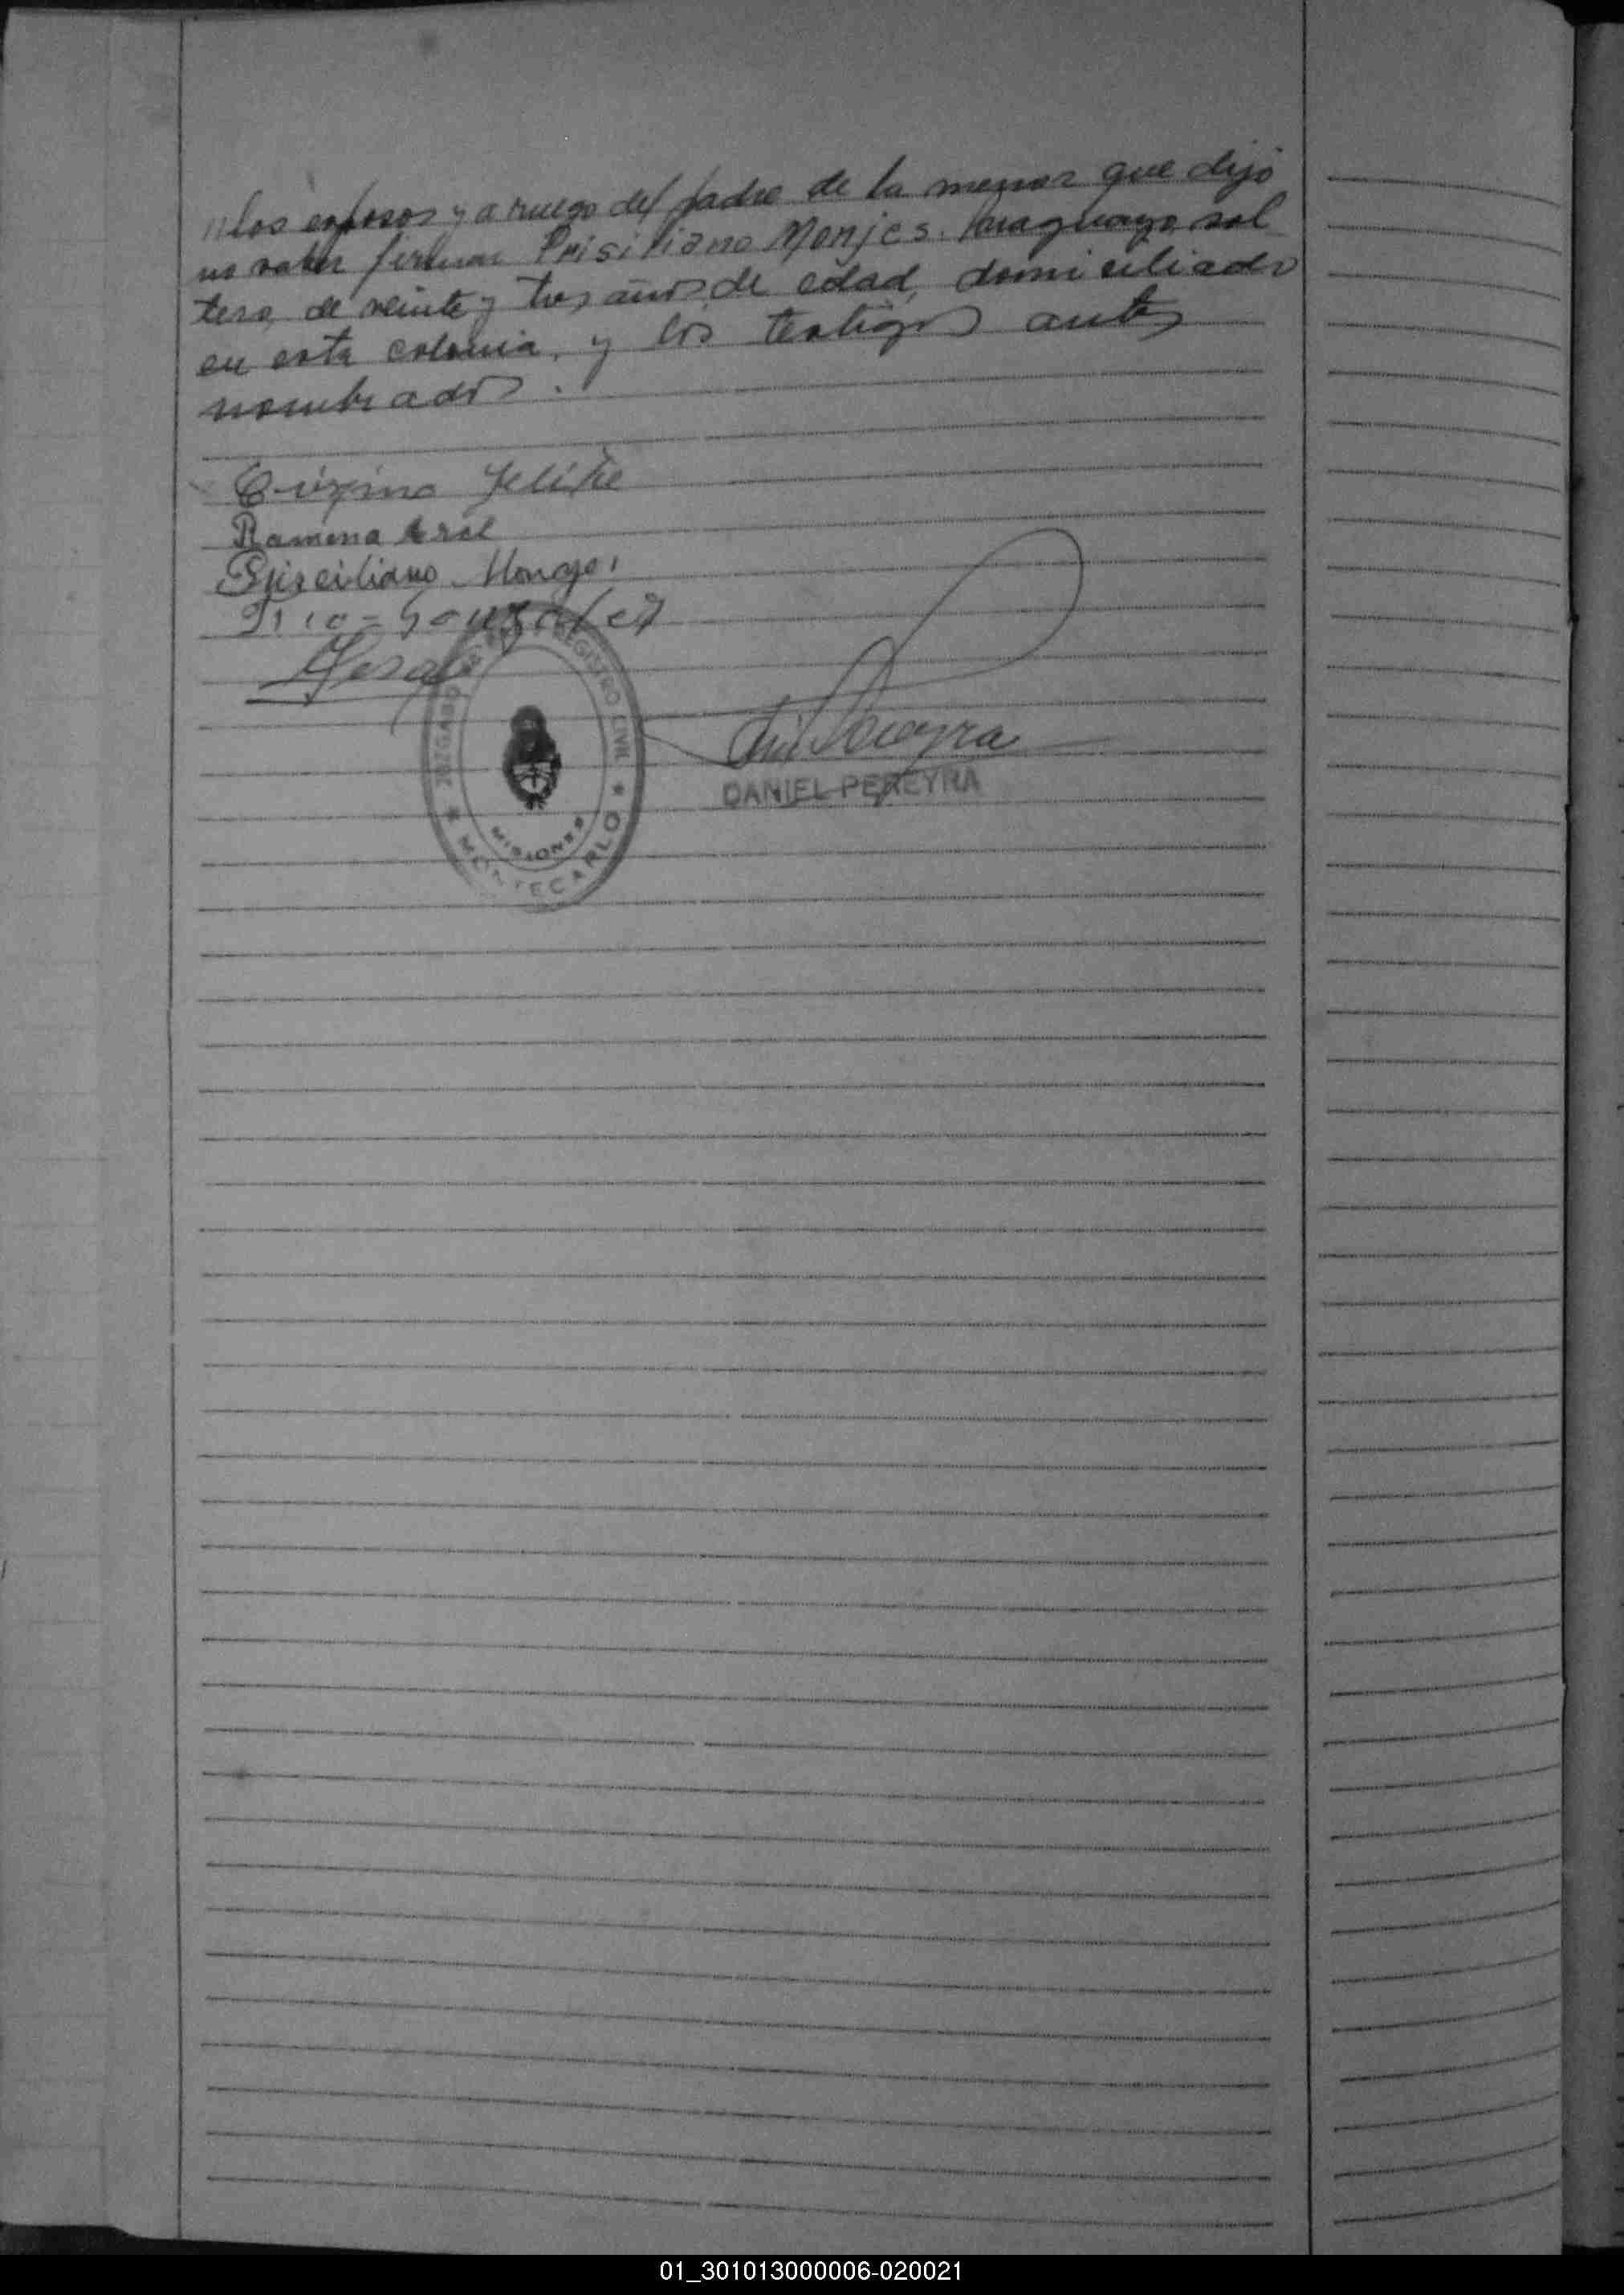 //los esposos y a ruego del padre de la menor que dijo
no saber firmar Prisiliano Monjes. Paraguayo, sol
tero, de veinte y tres años de edad, domiciliado
en esta colonia, y los testigos antes
nombrados.
Felipe
Ramona
Prisciliano Monges
Gonzalez
REGISTRO CIVIL
JUZGADO
MISIONES
MONTECARLO
Pereyra
DANIEL PEREYRA
01_301013000006-020021